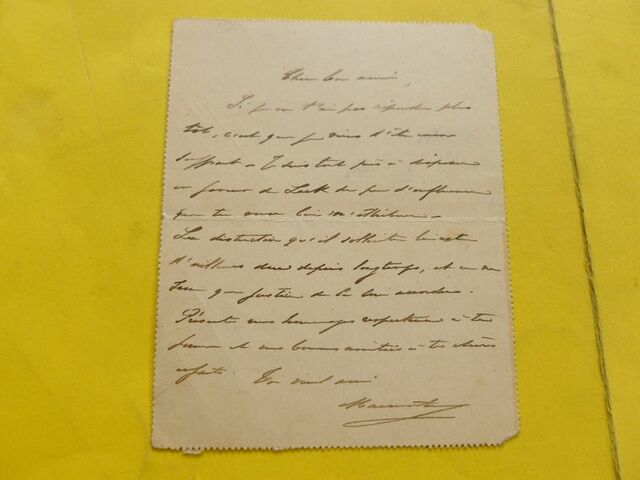 Cher bon ami,
Si je ne t'ai pas répondu plus
tôt, c'est que je viens d'être
Je suis tout prêt à disposer
en faveur de du peu d'influence
que tu veux bien m'attribuer.
La distinction qu'il sollicite lui est
d'ailleurs due depuis longtemps, et ce ne
sera que justice de la lui accorder.
Présente mes hommages respectueux à ta
femme et mes bonnes amitiés à tes chers
enfants. Ton vieil ami